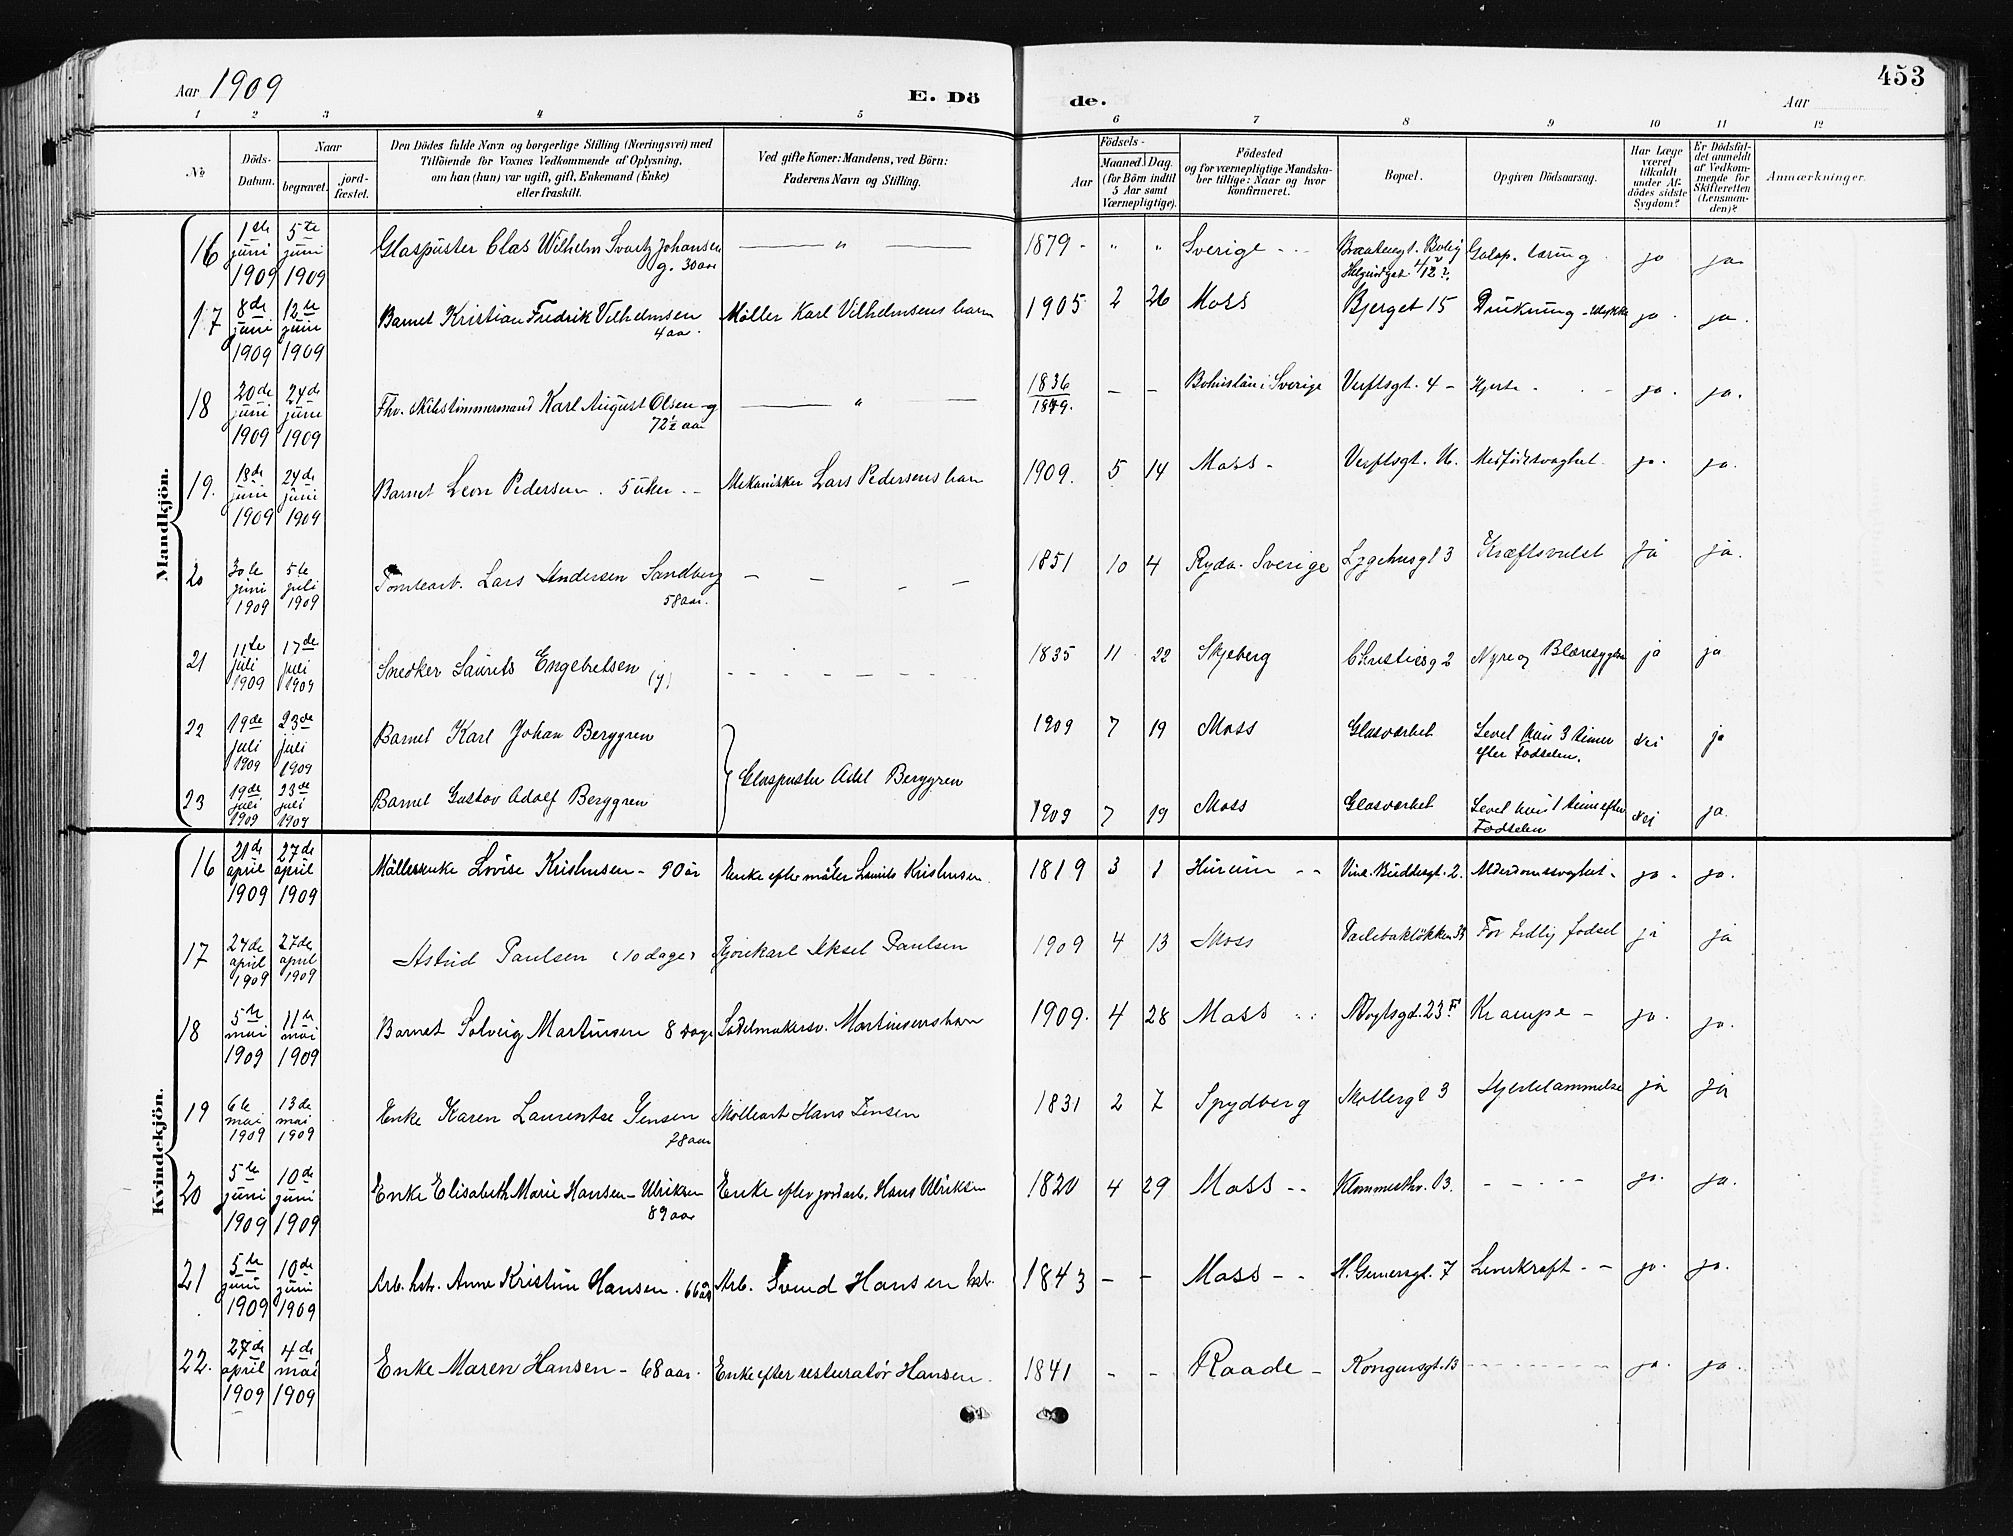 Aar 1909
E. Dö
de.
Aar
453
1 2 3 4 5 6 7 8 9 10 11 12
No
Döds-
Datum.
Naar
begravet.
jord-
fæstet.
Den Dödes fulde Navn og borgerlige Stilling (Næringsvei) med
Tilföiende for Voxnes Vedkommende af Oplysning,
om han (hun) var ugift, gift, Enkemand (Enke)
eller fraskilt.
Ved gifte Koner: Mandens, ved Börn:
Faderens Navn og Stilling.
Födsels-
Aar
Maaned. Dag.
(for Börn indtil
5 Aar samt
Værnepligtige).
Födested
og for værnepligtige Mandska-
ber tillige: Naar og hvor
konfirmeret.
Bopæl.
Opgiven Dödsaarsag.
Har Læge
været
tilkaldt
under Af-
dödes sidste
Sygdom?
Er Dödsfal-
det anmeldt
af Vedkom-
mende for
Skifteretten
(Lensman-
den)?
Anmærkninger.
Mandkjön.
16 1ste juni 1909 5te juni 1909 Glaspuster Clas Wilhelm Svartz Johansen g. 30 aar — " — 1879 - " " Sverige Galop. tæring ja ja
17 8de juni 1909 12te juni 1909 Barnet Kristian Fredrik Vilhelmsen 4 aar. Møller Karl Vilhelmsens barn 1905 2 26 Moss Bjerget 15 Drukning - ulykke ja. ja.
18 20de juni 1909 24de juni 1909 Fhv. Skibstimmermand Karl August Olsen - g 72½ aar — " — 1836 1879. — — Bohuslän i Sverige Verftsgt. 4 - Hjerte - ja. ja.
19. 18de juni 1909 24de juni 1909 Barnet Leon Pedersen. 5 uker. - Mekaniker Lars Pedersens barn 1909. 5 14 Moss - Verftsgt. Medfødt svaghet. ja. ja.
20 30te juni 1909 5te juli 1909 Tomtearb. Lars Andersen Sandberg 58 aar. — — — — 1851 10 4 Ryda. Sverige Lygehusgt 3 Kræftsvulst ja ja.
21 11te juli 1909 17de juli 1909 Snedker Laurits Engebretsen (g) - - - - 1835 11 22 Skjeberg Christiesg 2 Nyre og Blæresygdom ja ja
22 19de juli 1909 23de juli 1909 Barnet Karl Johan Berggren 1909 7 19 Moss Glasværket Levet kun 3 timer efter Fødselen. Nei ja
Glaspuster Adel Berggren
23 19de juli 1909 23de juli 1909 Barnet Gustav Adolf Berggren 1909 7 19 Moss Glasværket Levet kun 1 time efter Fødselen Nei ja.
Kvindekjön.
16 21de april 1909 27de april 1909 Møllerenke Lovise Kristensen - 90 år Enke efter møller Laurits Kristensen. 1819 3 1 Hurum - - Vinc. Buddesgt. 2. Alderdomssvaghet - ja - ja.
17 24de april 1909 27de april 1909 Astrid Paulsen (10 dage) Kjørekarl Aksel Paulsen 1909 4 13 Moss Varlebakløkken 33 For tidlig fødsel ja ja
18 5te mai 1909 11te mai 1909 Barnet Solveig Martinsen 8 dage Sadelmakersv. Martinsens barn 1909. 4 28 Moss Vogtsgd. 23 F Krampe - ja. ja.
19 6te mai 1909 13de mai 1909 Enke Karen Laurentse Jensen 78 aar Møllearb Hans Jensen 1831 2 7 Spydberg Møllergt 3 Hjertelammelse ja ja
20 5te juni 1909 10de juni 1909 Enke Elisabeth Marie Hansen - Ulriksen 89 aar Enke efter jordarb. Hans Ulriksen 1820 4 29 Moss - - Klommesthv. 13. - - - - - ja. ja.
21 5te juni 1909 10de juni 1909 Arb. hstr. Anne Kristine Hansen. 66 år Arb. Svend Hansen hst. 1843 — - Moss - - H. Gernersgt. 7 Leverkræft - - ja. ja.
22. 27de april 1909 4de mai 1909 Enke Maren Hansen - 68 aar. Enke efter restauratør Hansen. 1841 - - Raade - Kongensgt. 13 - - - - - - ja. ja.